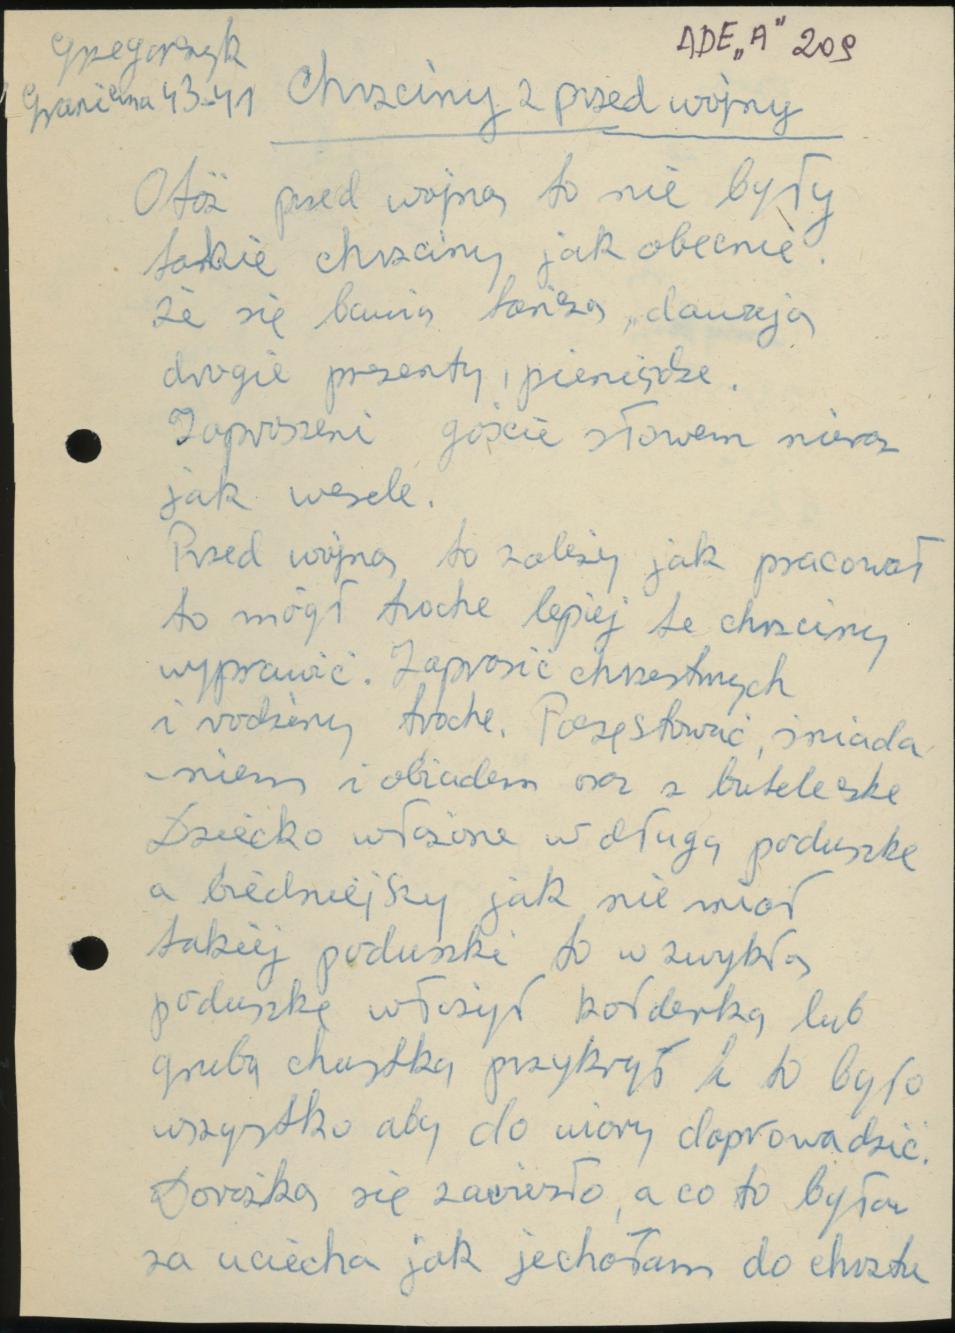 ADE„A" 209
Grzegorczyk
Graniczna 43-41
Chrzciny z przed wojny
Otóż przed wojną to nie były
takie chrzciny jak obecnie.
że się bawią tańczą, dawają
drogie prezenty, pieniądze.
Zaproszeni goście słowem nieraz
jak wesele.
Przed wojną to zależy jak pracował
to mógł troche lepiej te chrzciny
wyprawić. Zaprosić chrzestnych
i rodziny troche. Poczęstować, śniada
-niem i obiadem oraz z buteleczke
Dziecko włożone w długą poduszkę
a biedniejszy jak nie miał
takiej poduszki to w zwykłą
poduszkę włożył kołderką lub
grubą chustką przykrył i to było
wszystko aby do wiary doprowadzić.
Dorożką się zawiozło, a co to była
za uciecha jak jechałam do chrztu